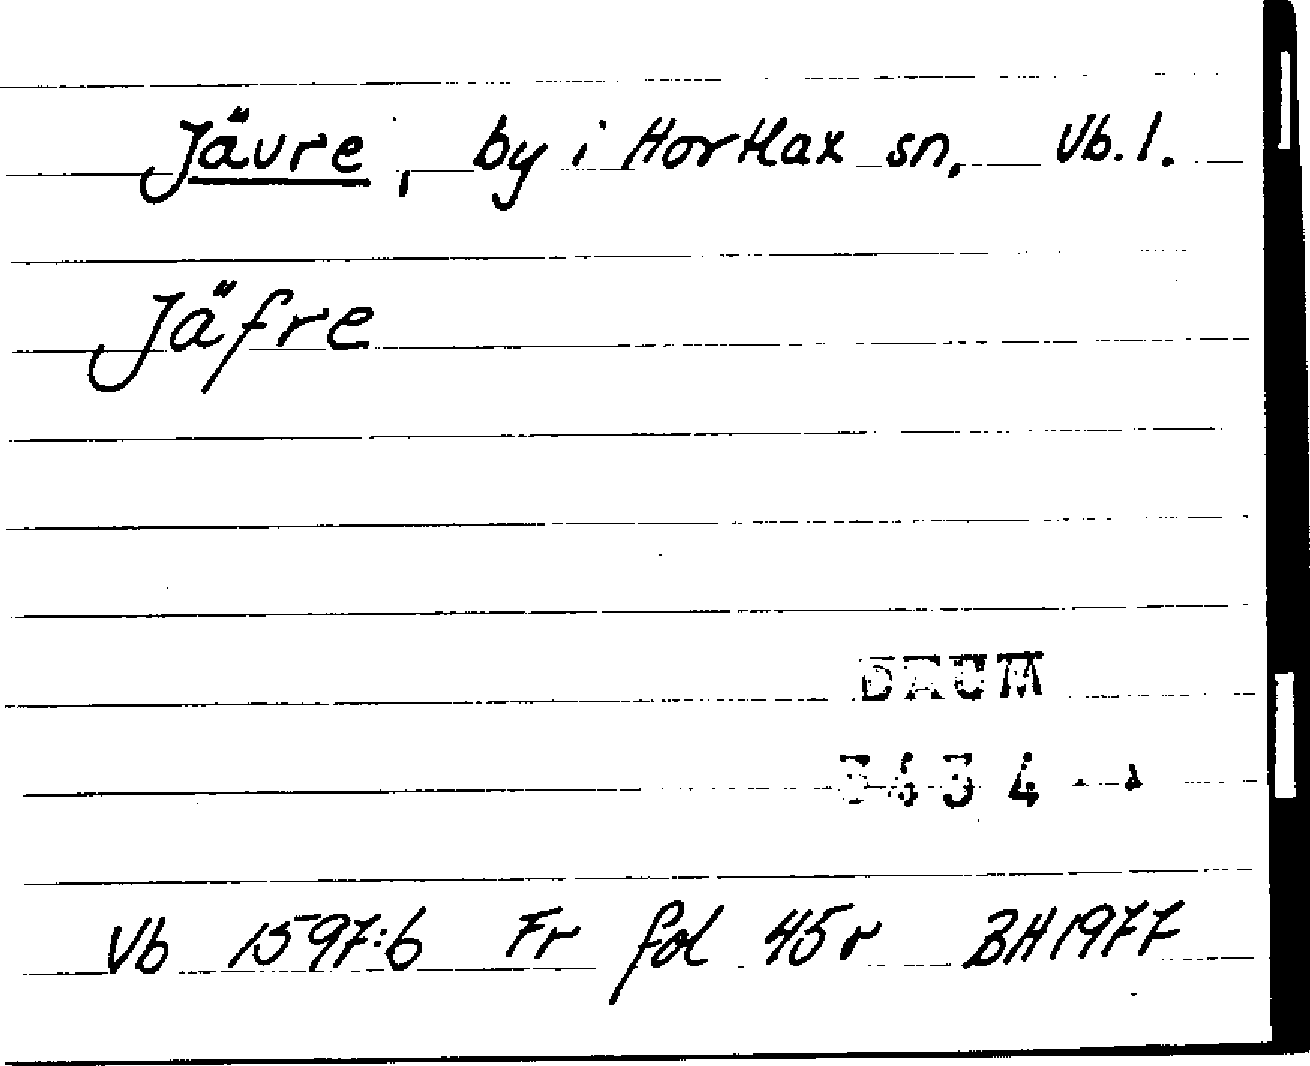 Jävre, by i Hortlax sn, Vb. l.
Jäfre
DAUM
3434
Vb 1597:6 Fr fol 45 r BH 1977